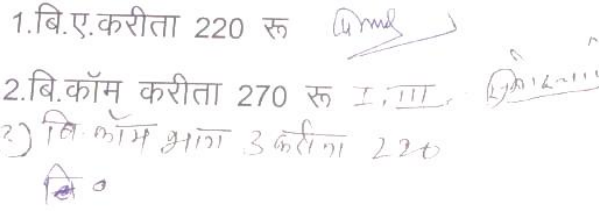 1.बि.ए.करीता 220 रू
2.बि.कॉम करीता 270 रू I, III.
२) बि.कॉम भाग 3 करीता 220
बि ०